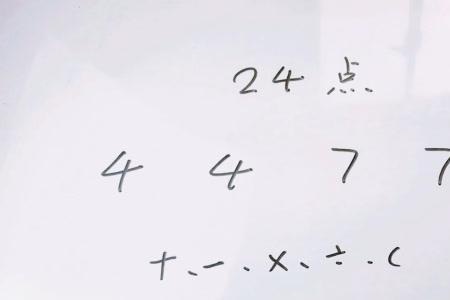 24点
4 4 7 7
+、-、×、÷、(